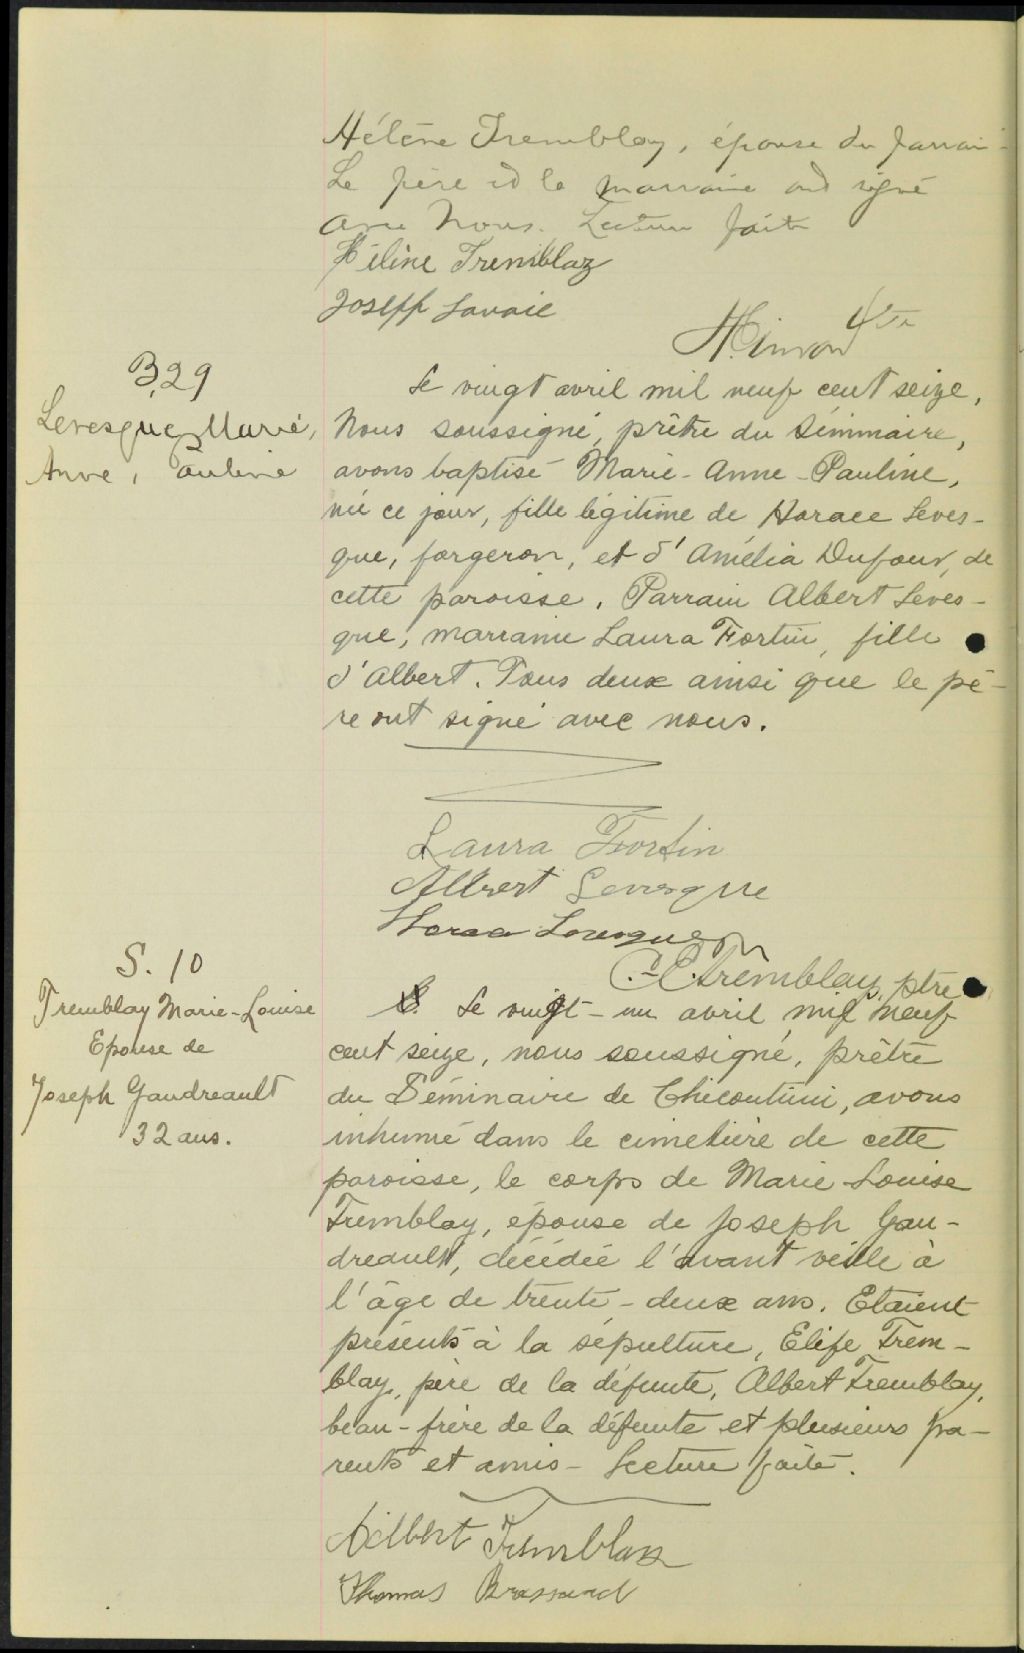 Hélène Tremblay, épouse du parrain.
Le père et la marraine ont signé
avec Nous. Lecture faite
Héline Tremblay
Joseph Lavoie
ptre
B, 29
Levesque, Marie,
Anne, Pauline
Le vingt avril mil neuf cent seize,
Nous soussigné, prêtre du Séminaire,
avons baptisé Marie-Anne-Pauline,
née ce jour, fille légitime de Horace Leves-
que, forgeron, et d'Amélia Dufour, de
cette paroisse. Parrain Albert Leves-
que, marraine Laura Fortin, fille
d'Albert. Tous deux ainsi que le pè-
re ont signé avec nous.
Laura Fortin
Albert Levesque
Horace Levesque
C.-E. Tremblay, ptre
S. 10
Tremblay Marie-Louise
Epouse de
Joseph Gaudreault
32 ans.
Le vingt-un avril mil neuf
cent seize, nous soussigné, prêtre
du Séminaire de Chicoutimi, avons
inhumé dans le cimetière de cette
paroisse, le corps de Marie-Louise
Tremblay, épouse de Joseph Gau-
dreault, décédée l'avant veille à
l'âge de trente-deux ans. Etaient
présents à la sépulture, Elife Trem-
blay, père de la défunte, Albert Tremblay,
beau-frère de la défunte et plusieurs pa-
rents et amis - Lecture faite.
Albert Tremblay
Thomas Brassard